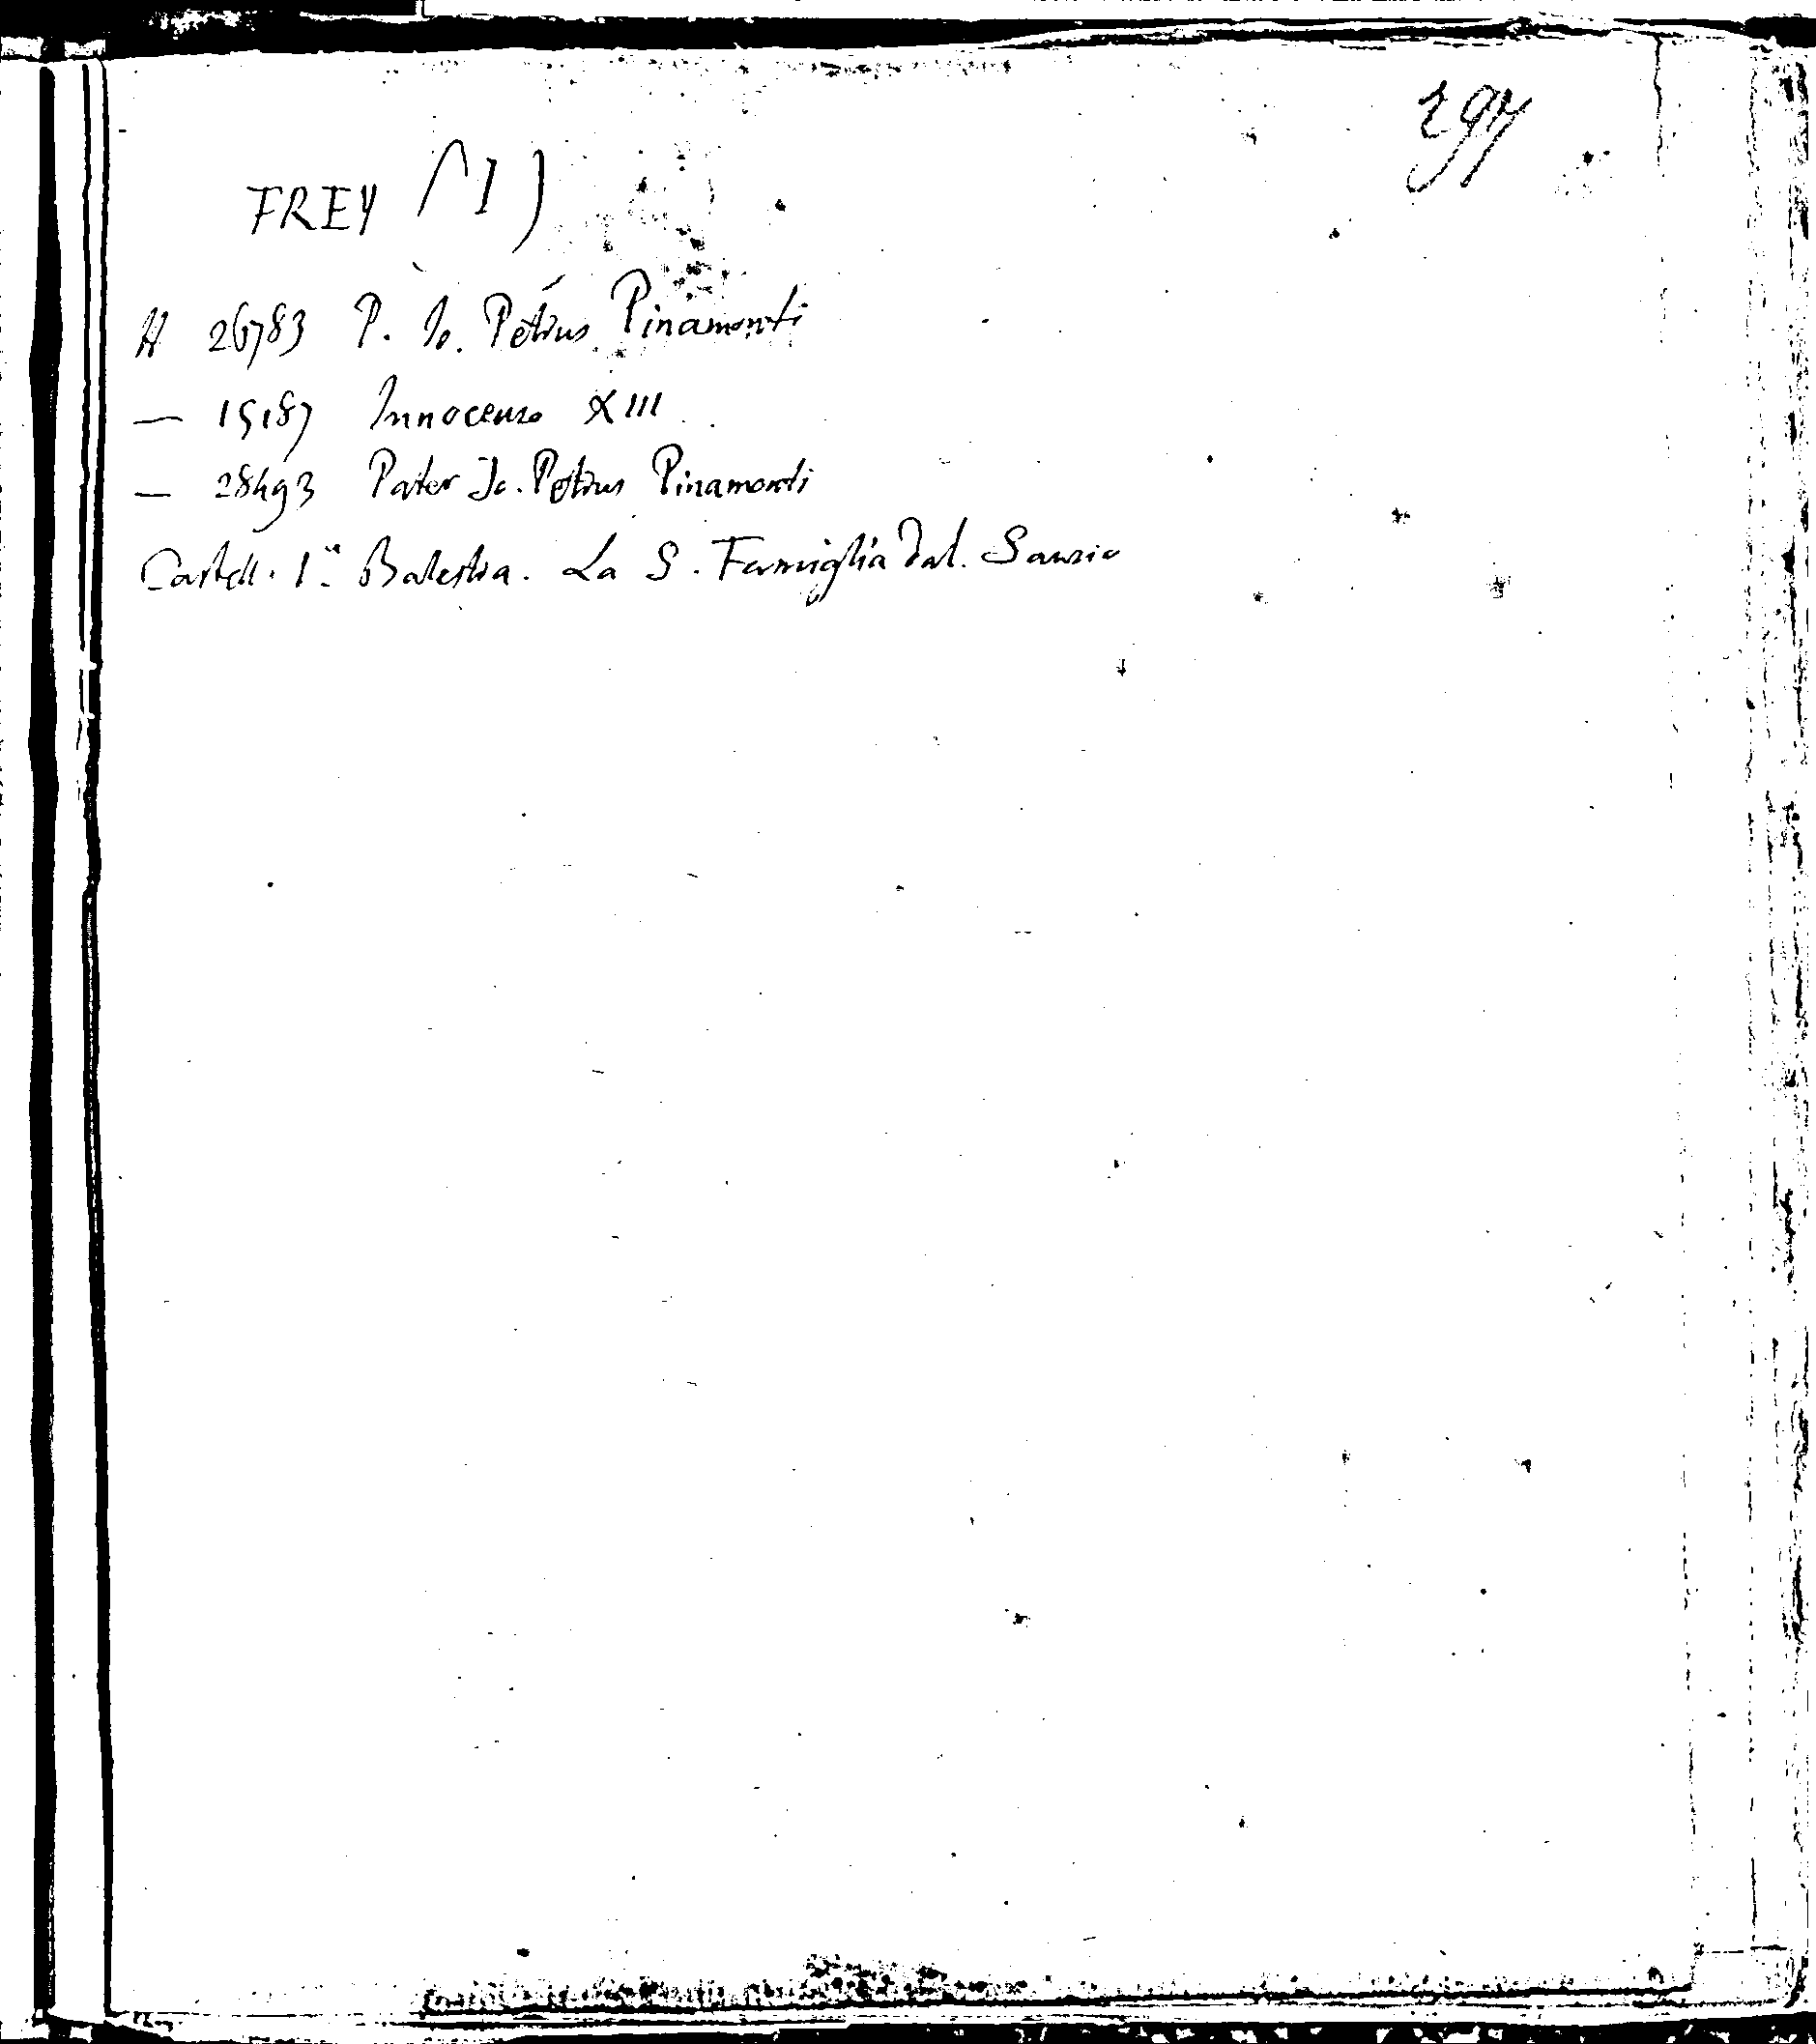 297
FREY (I)
H 26783 P. Jo. Petrus Pinamonti
— 15187 Innocenzo XIII
— 28493 Pater Jo. Petrus Pinamonti
Cartell. 1.a Balestra. La S. Famiglia dal. Sanzio